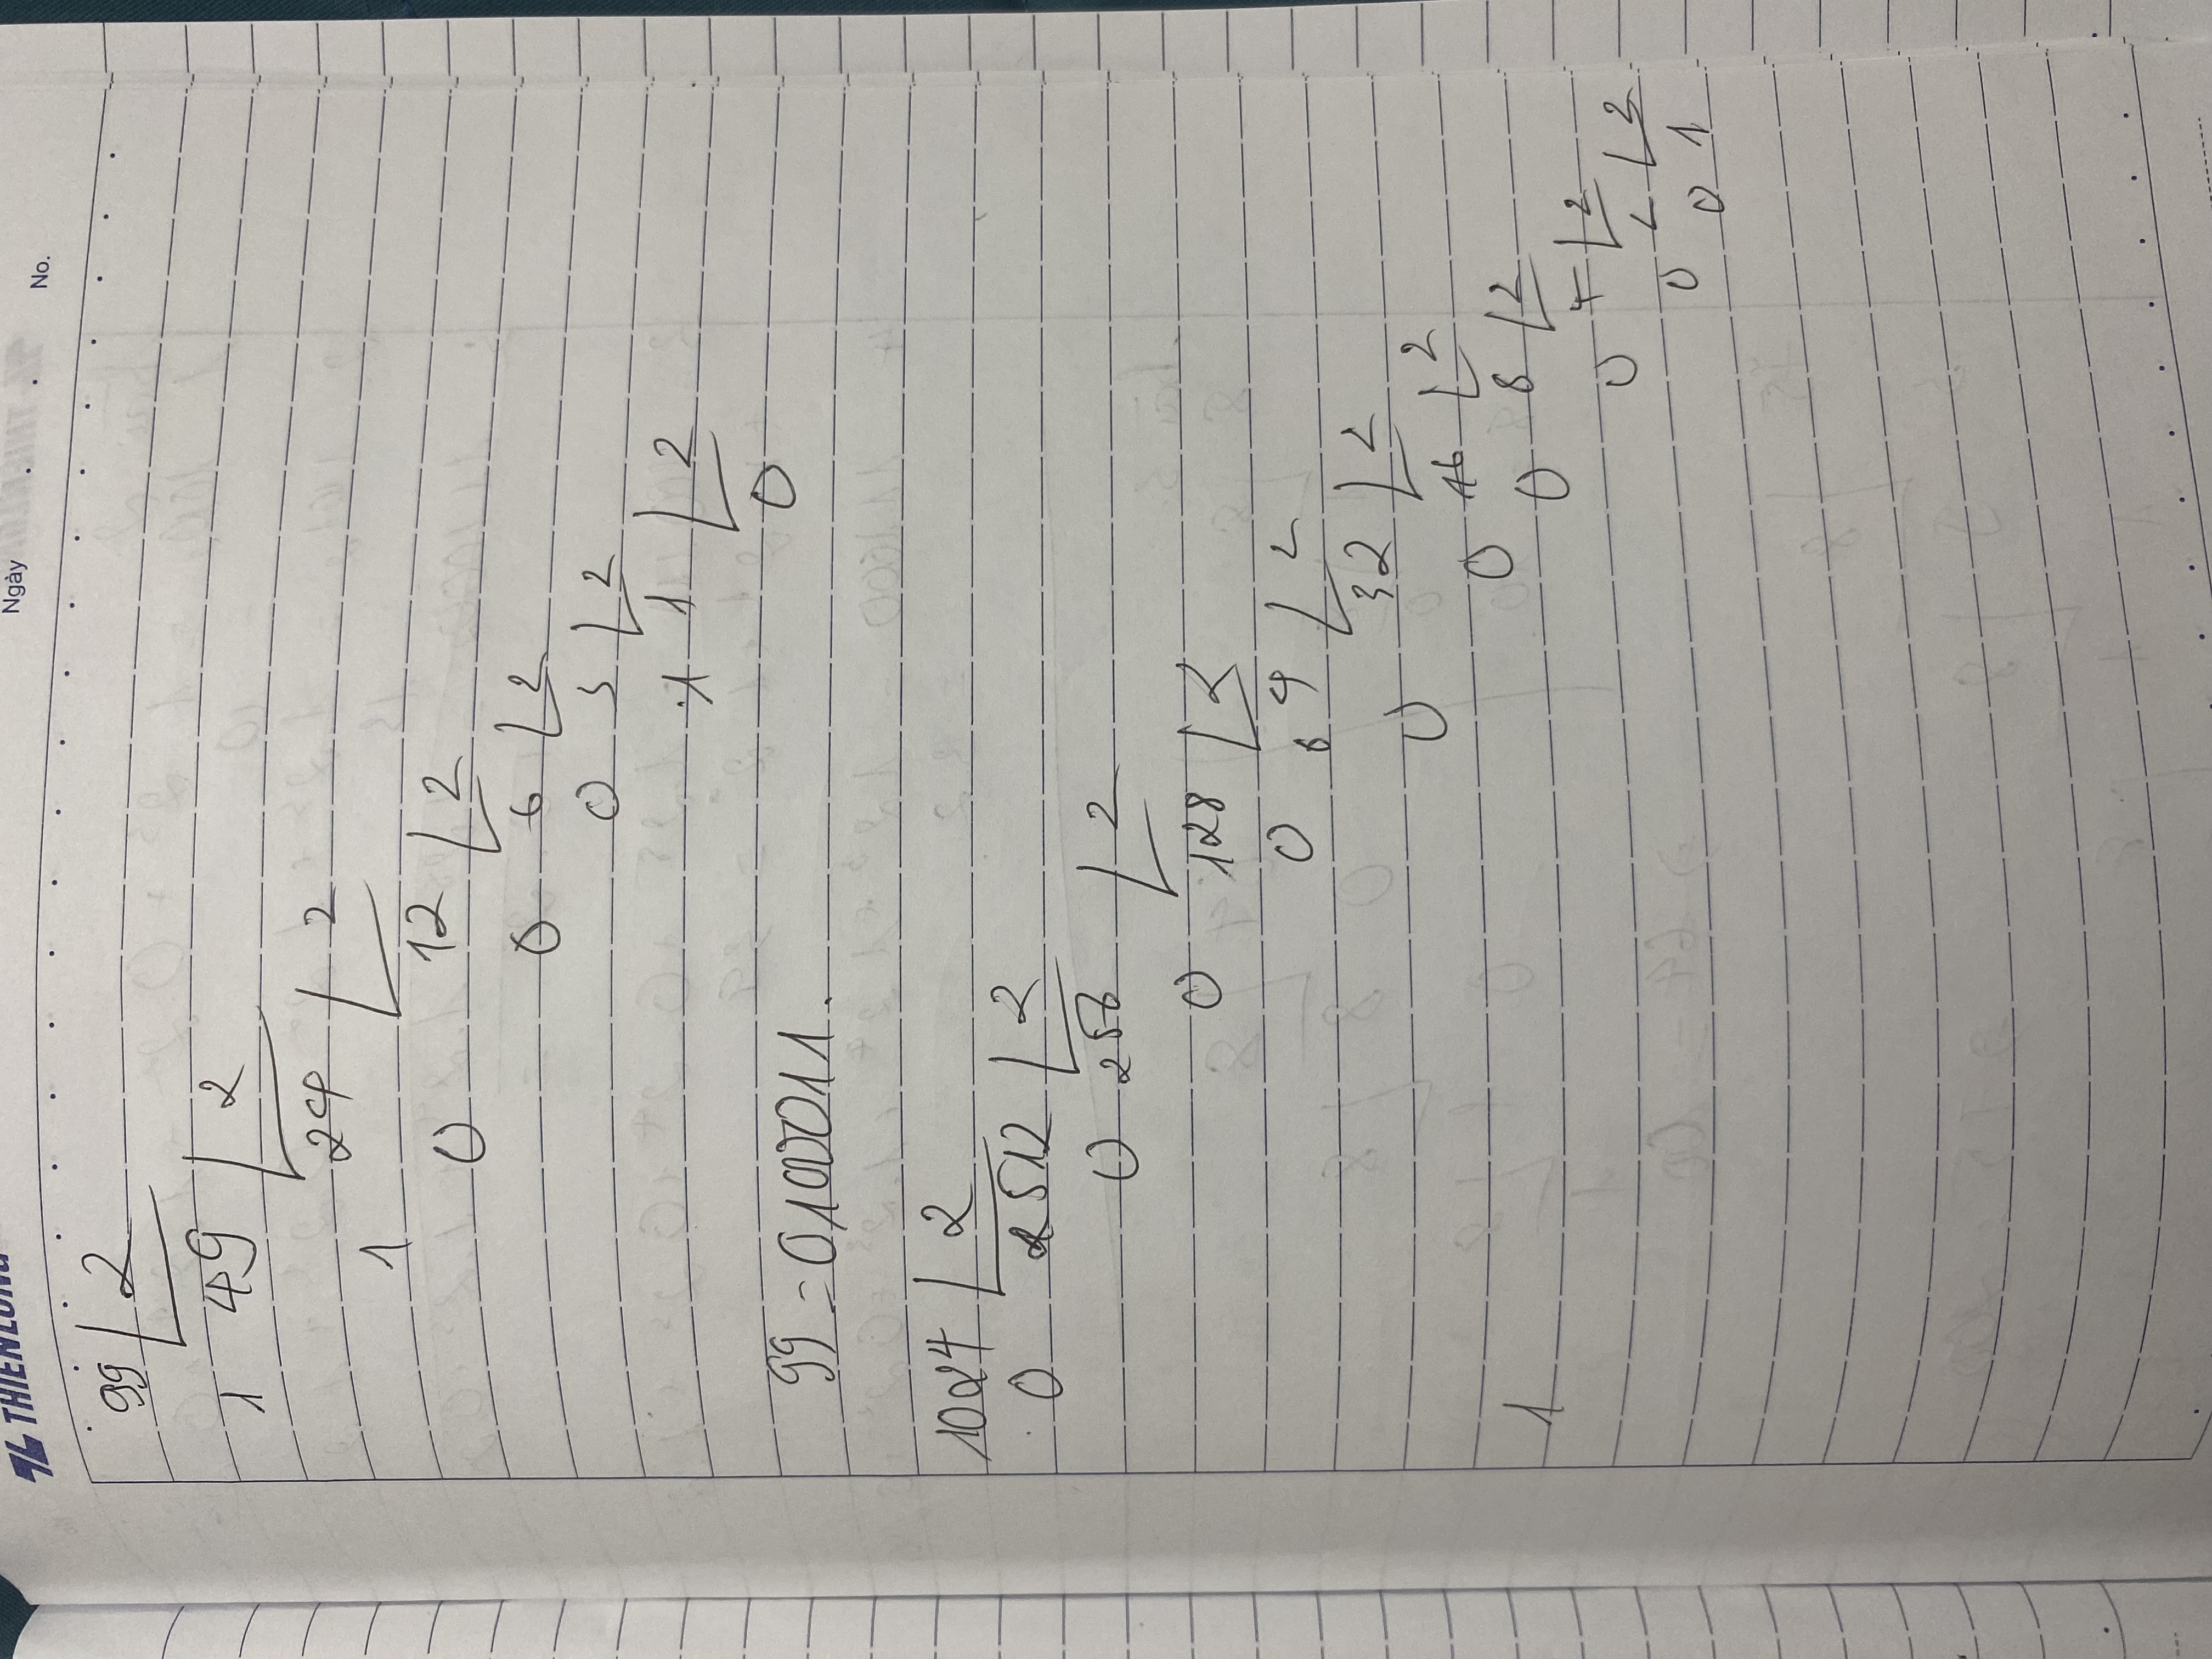 THIENLONG
Ngày
No.
99 2
1 49 2
24 2
1
0 12 2
0 6 2
0 3 2
1 1 2
0
99 = 0100011.
1024 2
0 512 2
0 256 2
0 128 2
0 64 2
0 32 2
0 16 2
0 8 2
1
0 4 2
0 2 2
0 1